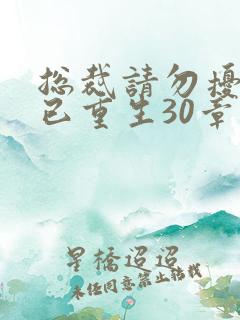 总裁請勿擾
已重生30章
星橋迢迢
未经同意禁止转载